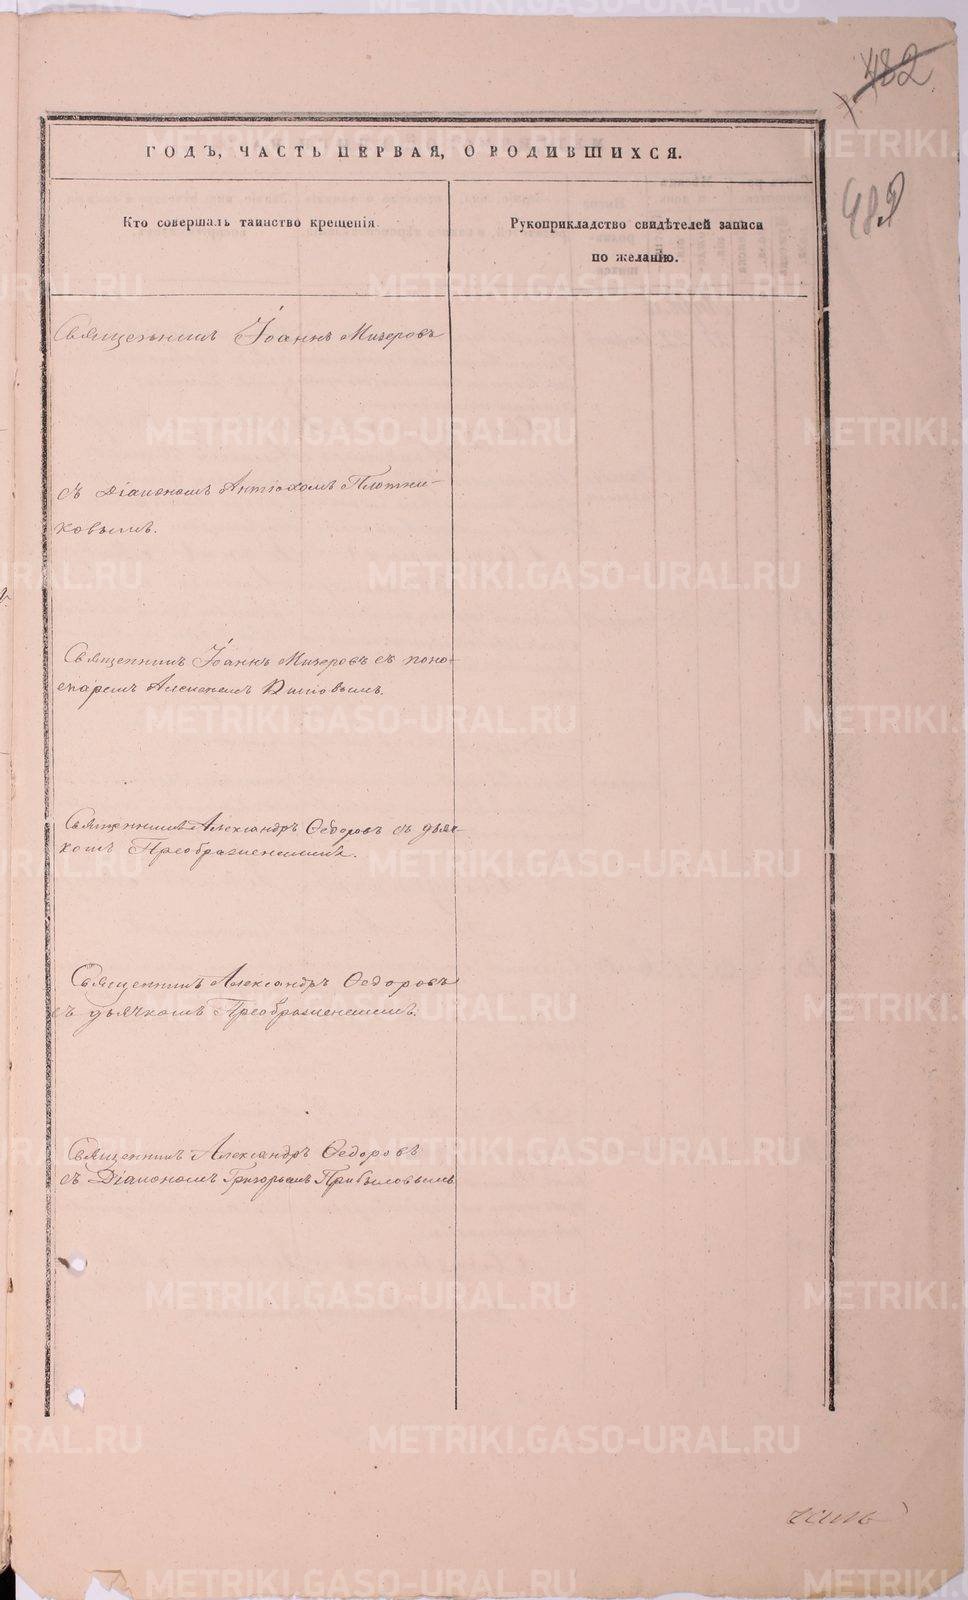 482
ГОДЪ, ЧАСТЬ ПЕРВАЯ, О РОДИВШИХСЯ.
Кто совершалъ таинство крещенія.
Рукоприкладство свидѣтелей записи
по желанію.
Священникъ Іоаннъ Мизеровъ
съ Діакономъ Антіохомъ Плотни-
ковымъ.
Священникъ Іоаннъ Мизеровъ съ поно-
маремъ Алексѣемъ
Священникъ Александръ Ѳедоровъ съ дьяч-
комъ Преображенскимъ.
Священникъ Александръ Ѳедоровъ
съ дьячкомъ Преображенскимъ.
Священникъ Александръ Ѳедоровъ
съ Діакономъ Григорьемъ Прибыловымъ
METRIKI.GASO-URAL.RU